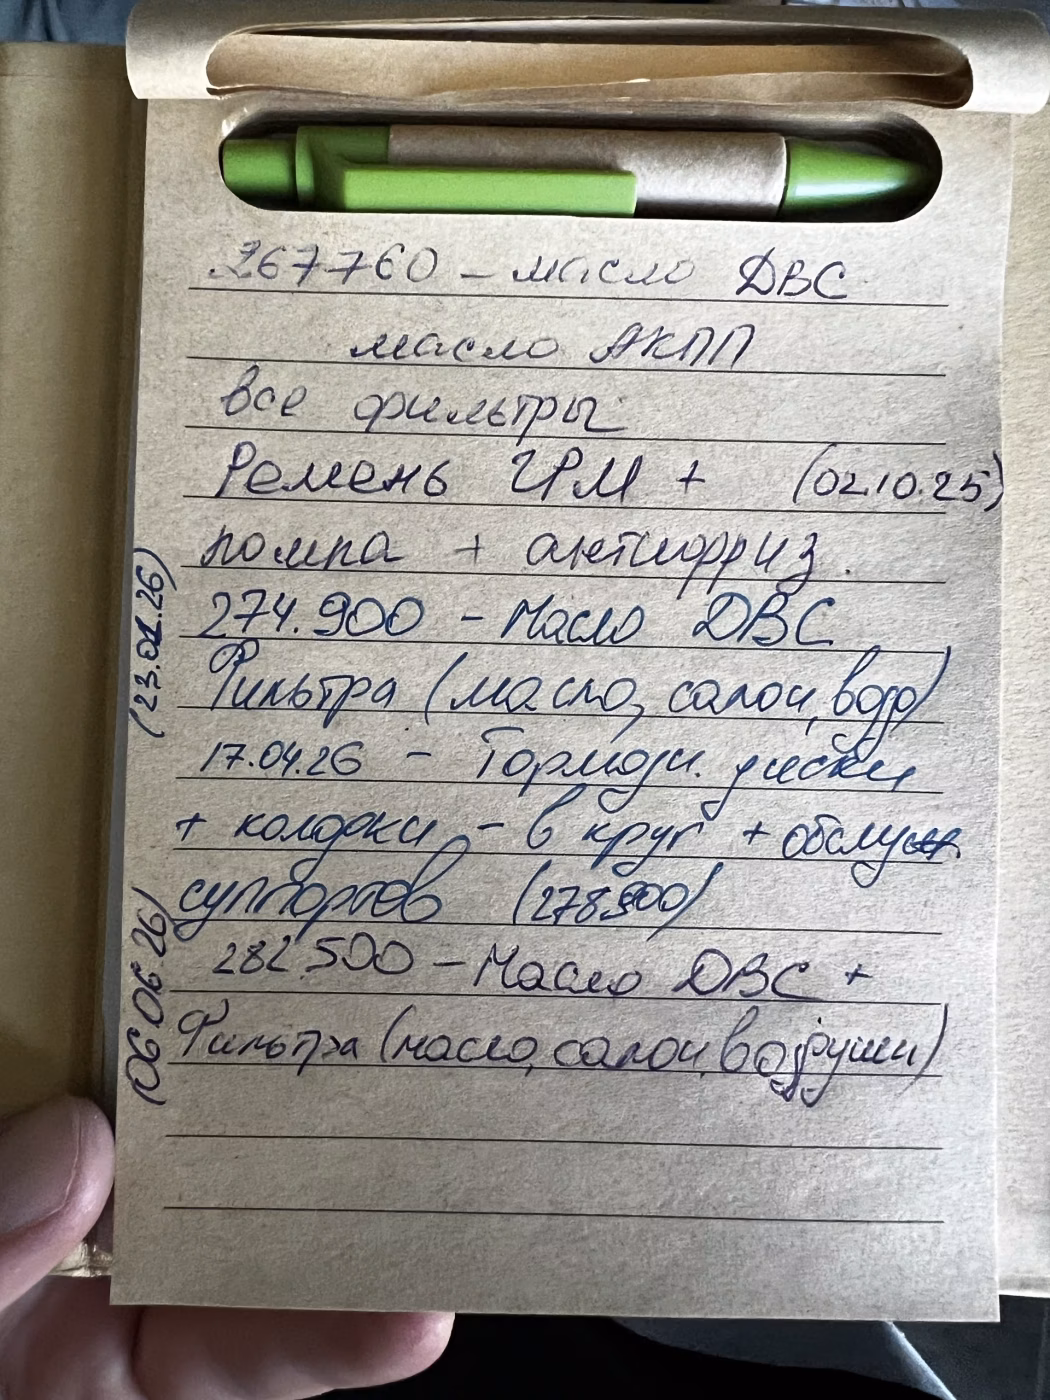 267760 – масло ДВС
масло АКПП
все фильтры
Ремень ГРМ + (02.10.25)
помпа + антифриз.
(23.01.26)
274.900 – Масло ДВС
Фильтра (масло, салон, возд)
17.04.26 – Тормозн. диски
+ колодки – в круг + обслуж
суппортов (278900)
(06.06.26)
282.500 – Масло ДВС +
Фильтра (масло, салон, воздушн)